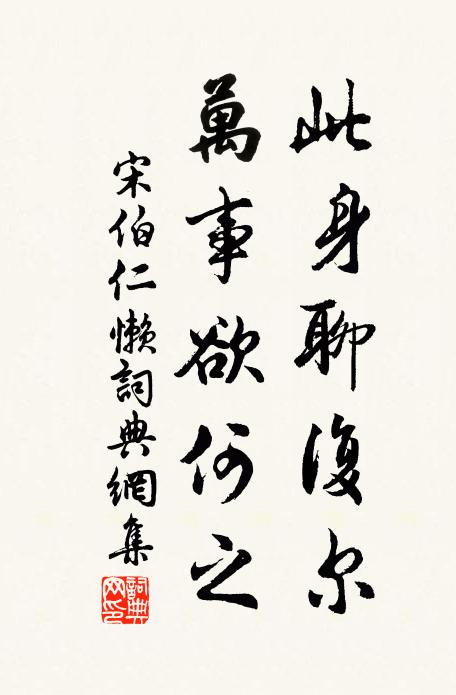 此身聊復尔
萬事欲何之
宋伯仁懶詞典網集
詞典網印